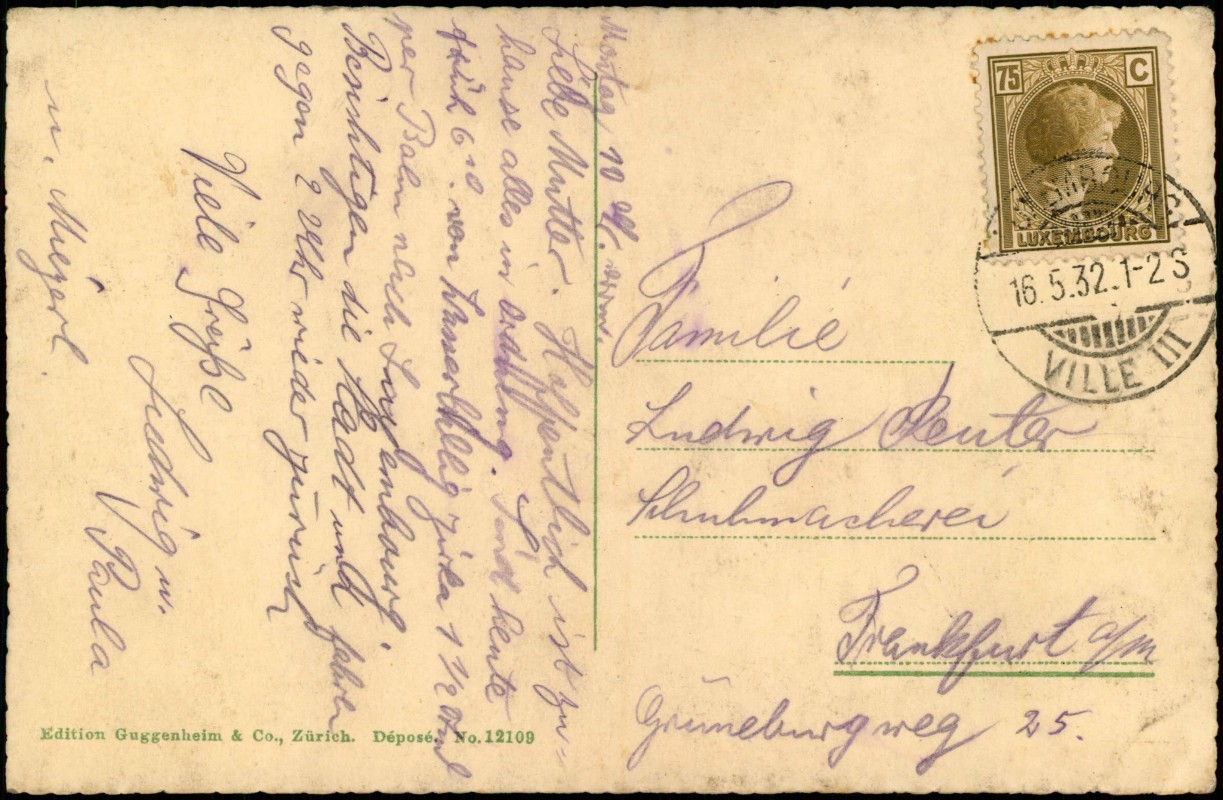 Montag 10 Uhr vorm.
Liebe Mutter. Hoffentlich ist zu-
hause alles in ordnung. Sind heute
früh 6 10. von Wasserbillig zirka 1 1/2 Stund
per Bahn nach Luxembourg.
Besichtigen die Stadt und fahren
gegen 2 Uhr wieder zurück
Viele Grüße
Ludwig u.
Paula
u.
75 C
LUXEMBOURG
LUXEMBOURG
16.5.32.1-2 S
VILLE III
Familie
Ludwig Reuter
Schuhmacherei
Frankfurt a/m
Grüneburgweg 25.
Edition Guggenheim & Co., Zürich. Déposé. No. 12109